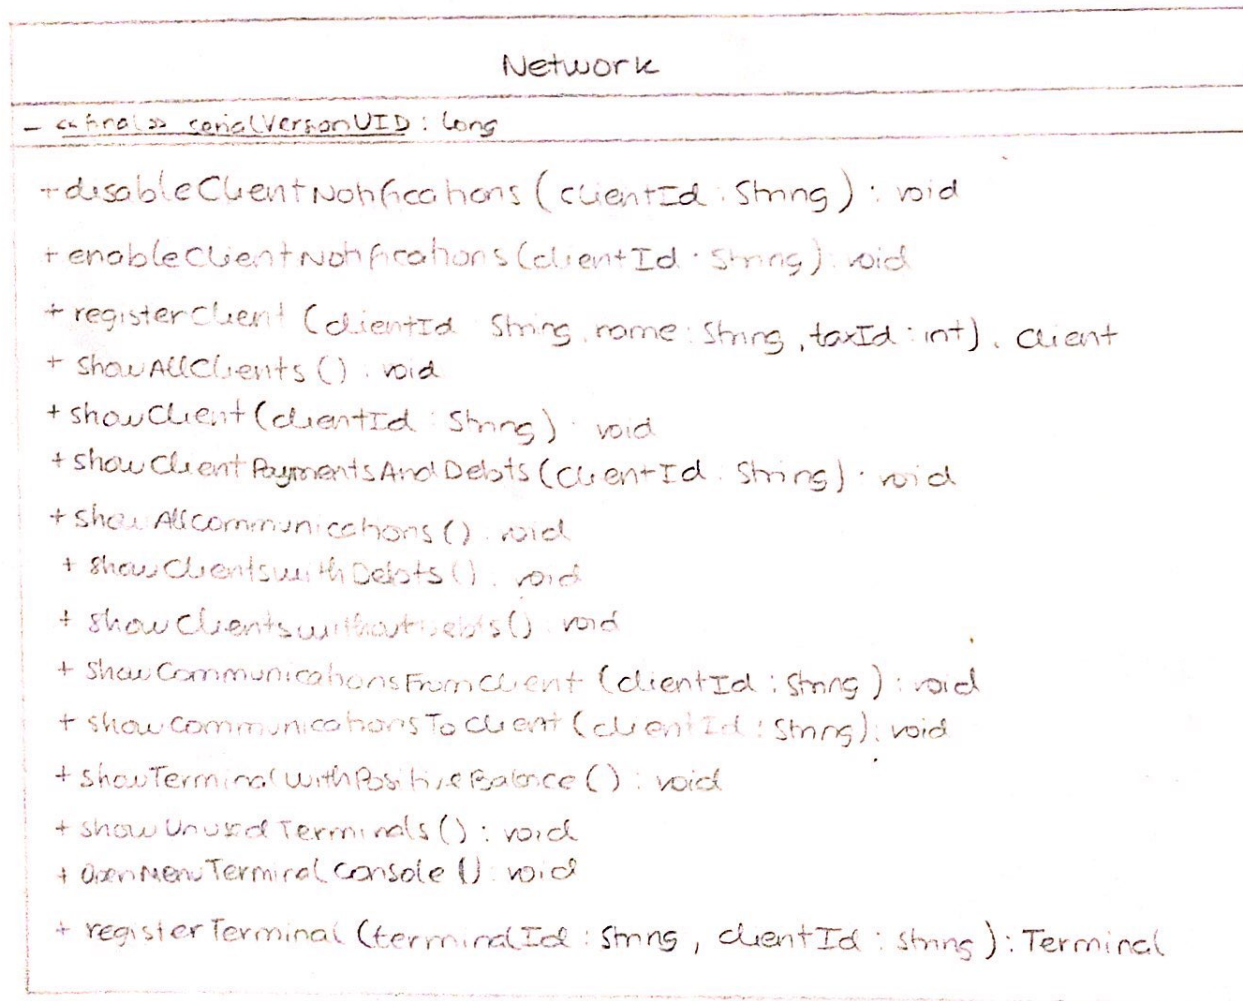 Network
- <<final>> serialVersionUID : long
+ disableClientNotifications (clientId : String) : void
+ enableClientNotifications (clientId : String) : void
+ registerClient (clientId : String, name : String, taxId : int) : Client
+ showAllClients () : void
+ showClient (clientId : String) : void
+ showClientPaymentsAndDebts (clientId : String) : void
+ showAllCommunications () : void
+ showClientsWithDebts () : void
+ showClientsWithoutDebts () : void
+ showCommunicationsFromClient (clientId : String) : void
+ showCommunicationsToClient (clientId : String) : void
+ showTerminalWithPositiveBalance () : void
+ showUnusedTerminals () : void
+ openMenuTerminalConsole () : void
+ registerTerminal (terminalId : String, clientId : String) : Terminal